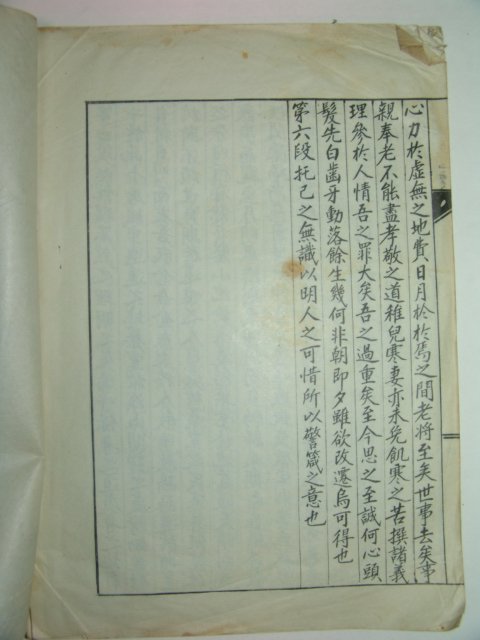 心力於虛無之地費日月於於焉之間老將至矣世事去矣事
親奉老不能盡孝敬之道稚兒寒妻亦未免飢寒之苦撰諸義
理參於人情吾之罪大矣吾之過重矣至今思之至誠何心頭
髮先白齒牙動落餘生幾何非朝卽夕雖欲改遷烏可得也
第六段托己之無識以明人之可惜所以警箴之意也